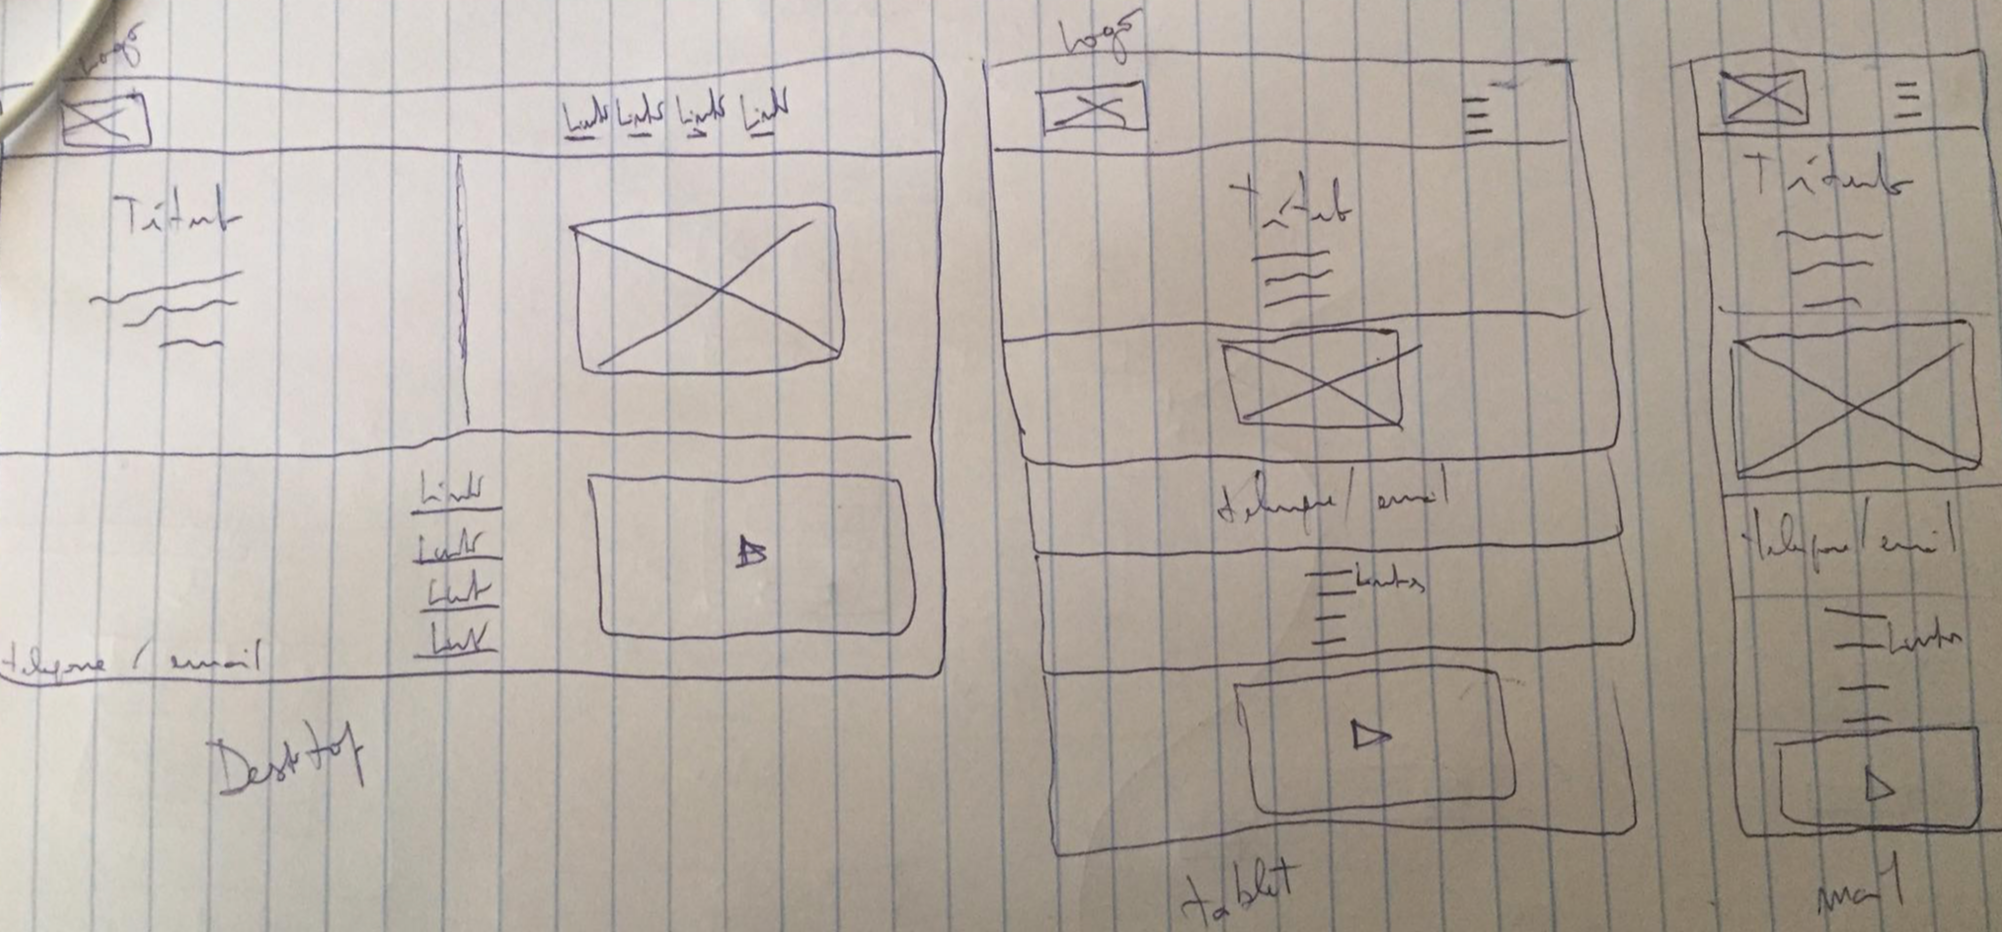 Logo
Link Link Link Link
Título
Link
Link
Link
Link
telefone / email
Desktop
Logo
Título
telefone / email
Links
tablet
Título
telefone / email
Links